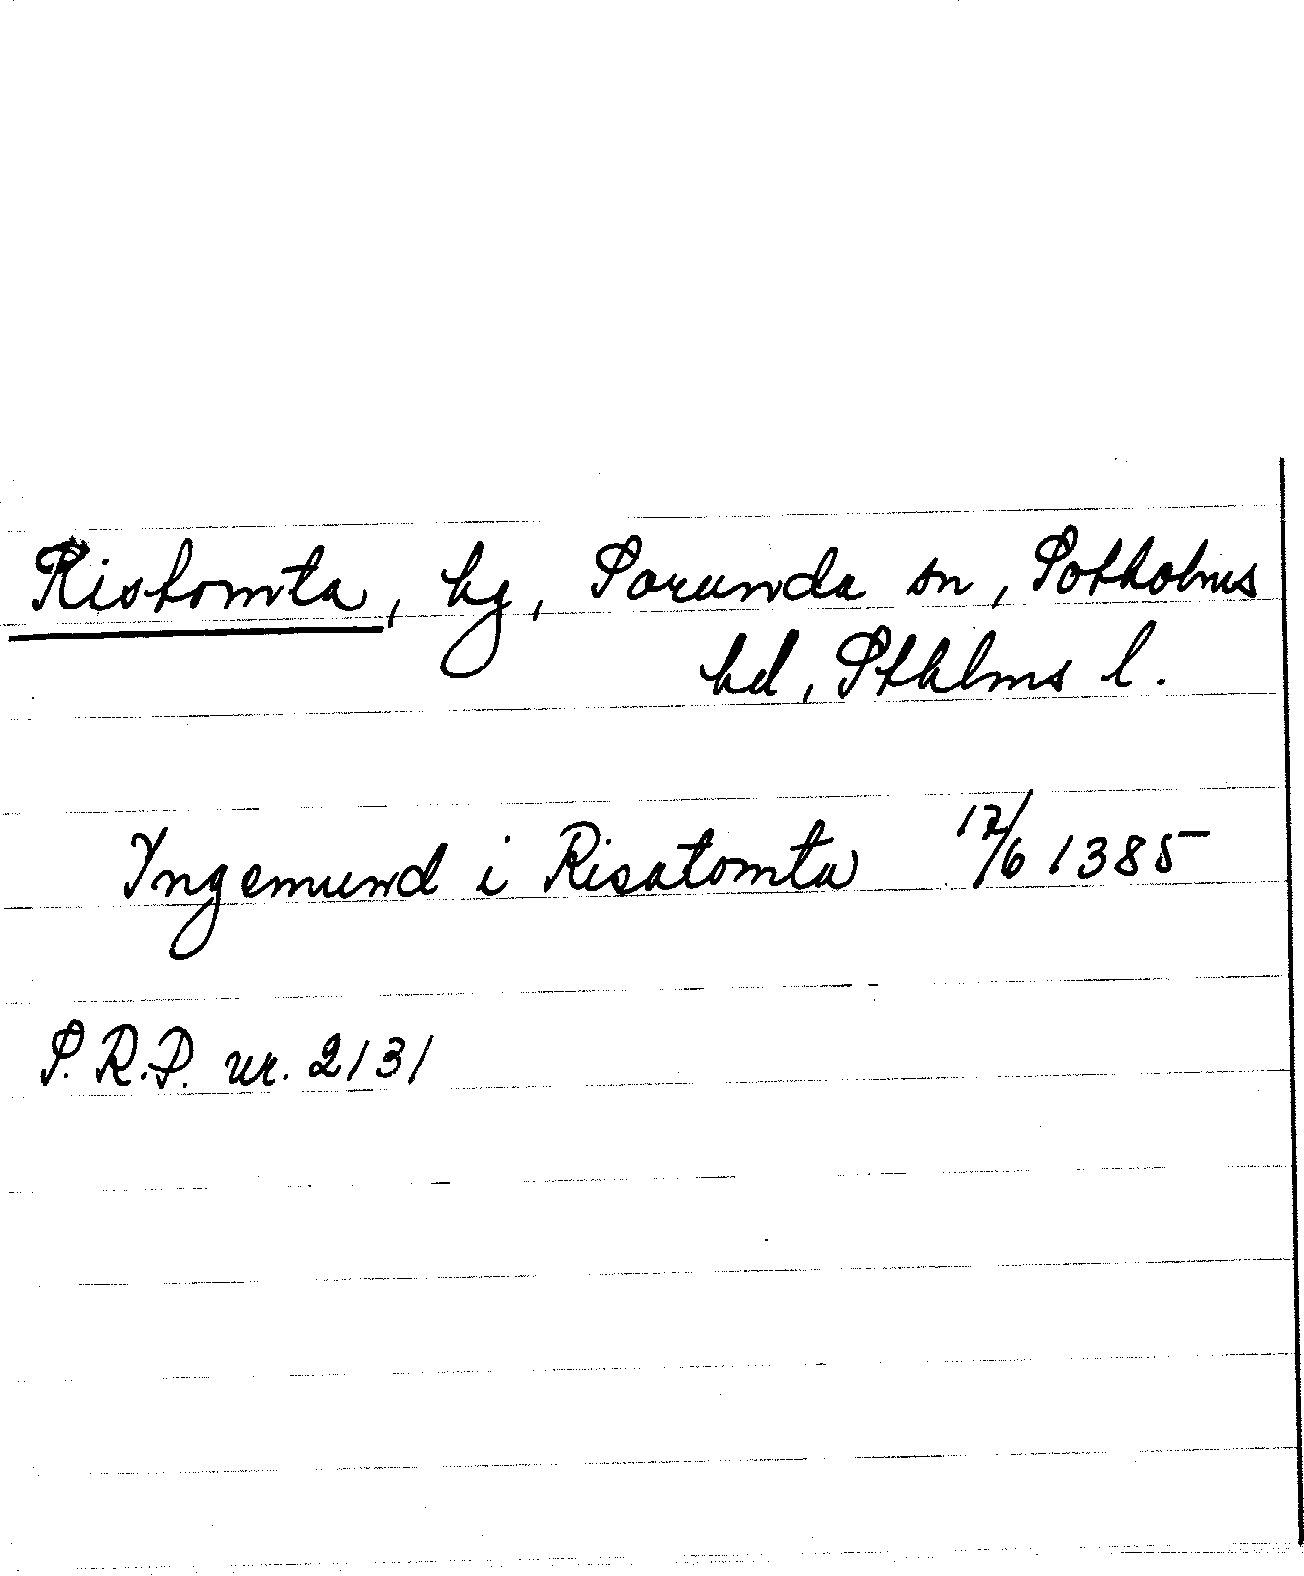 Ristomta, hg, Sorunda sn, Sotholms
hd, Sthlms l.
Yngemund i Risatomta 17/6 1385
S.R.P. nr. 2131